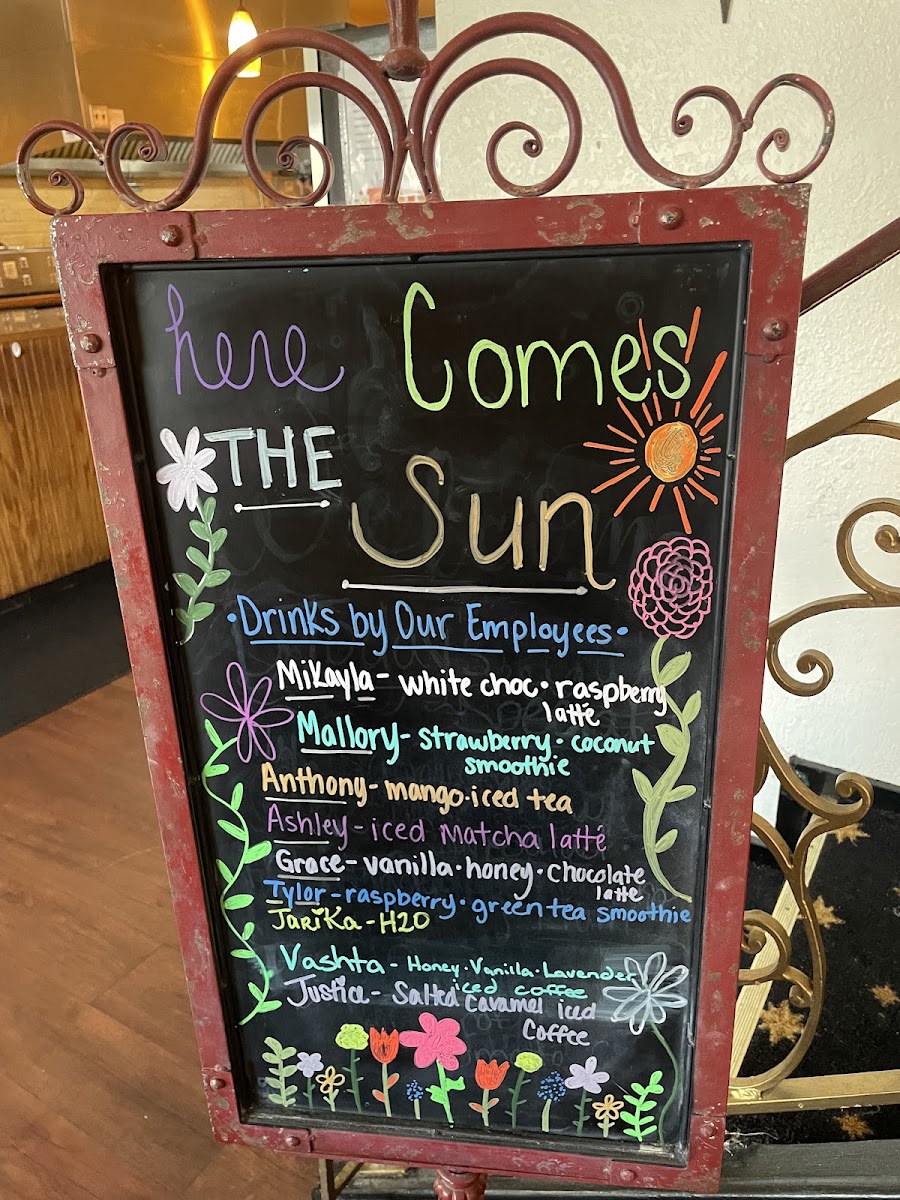 here Comes
THE
Sun
•Drinks by Our Employees•
Mikayla - white choc • raspberry
latté
Mallory - strawberry • coconut
smoothie
Anthony - mango • iced tea
Ashley - iced Matcha latté
Grace - vanilla • honey • chocolate
latte
Tylor - raspberry • green tea smoothie
Jarika - H2O
Vashta - Honey • Vanilla • Lavender
iced coffee
Justice - Salted Caramel iced
Coffee